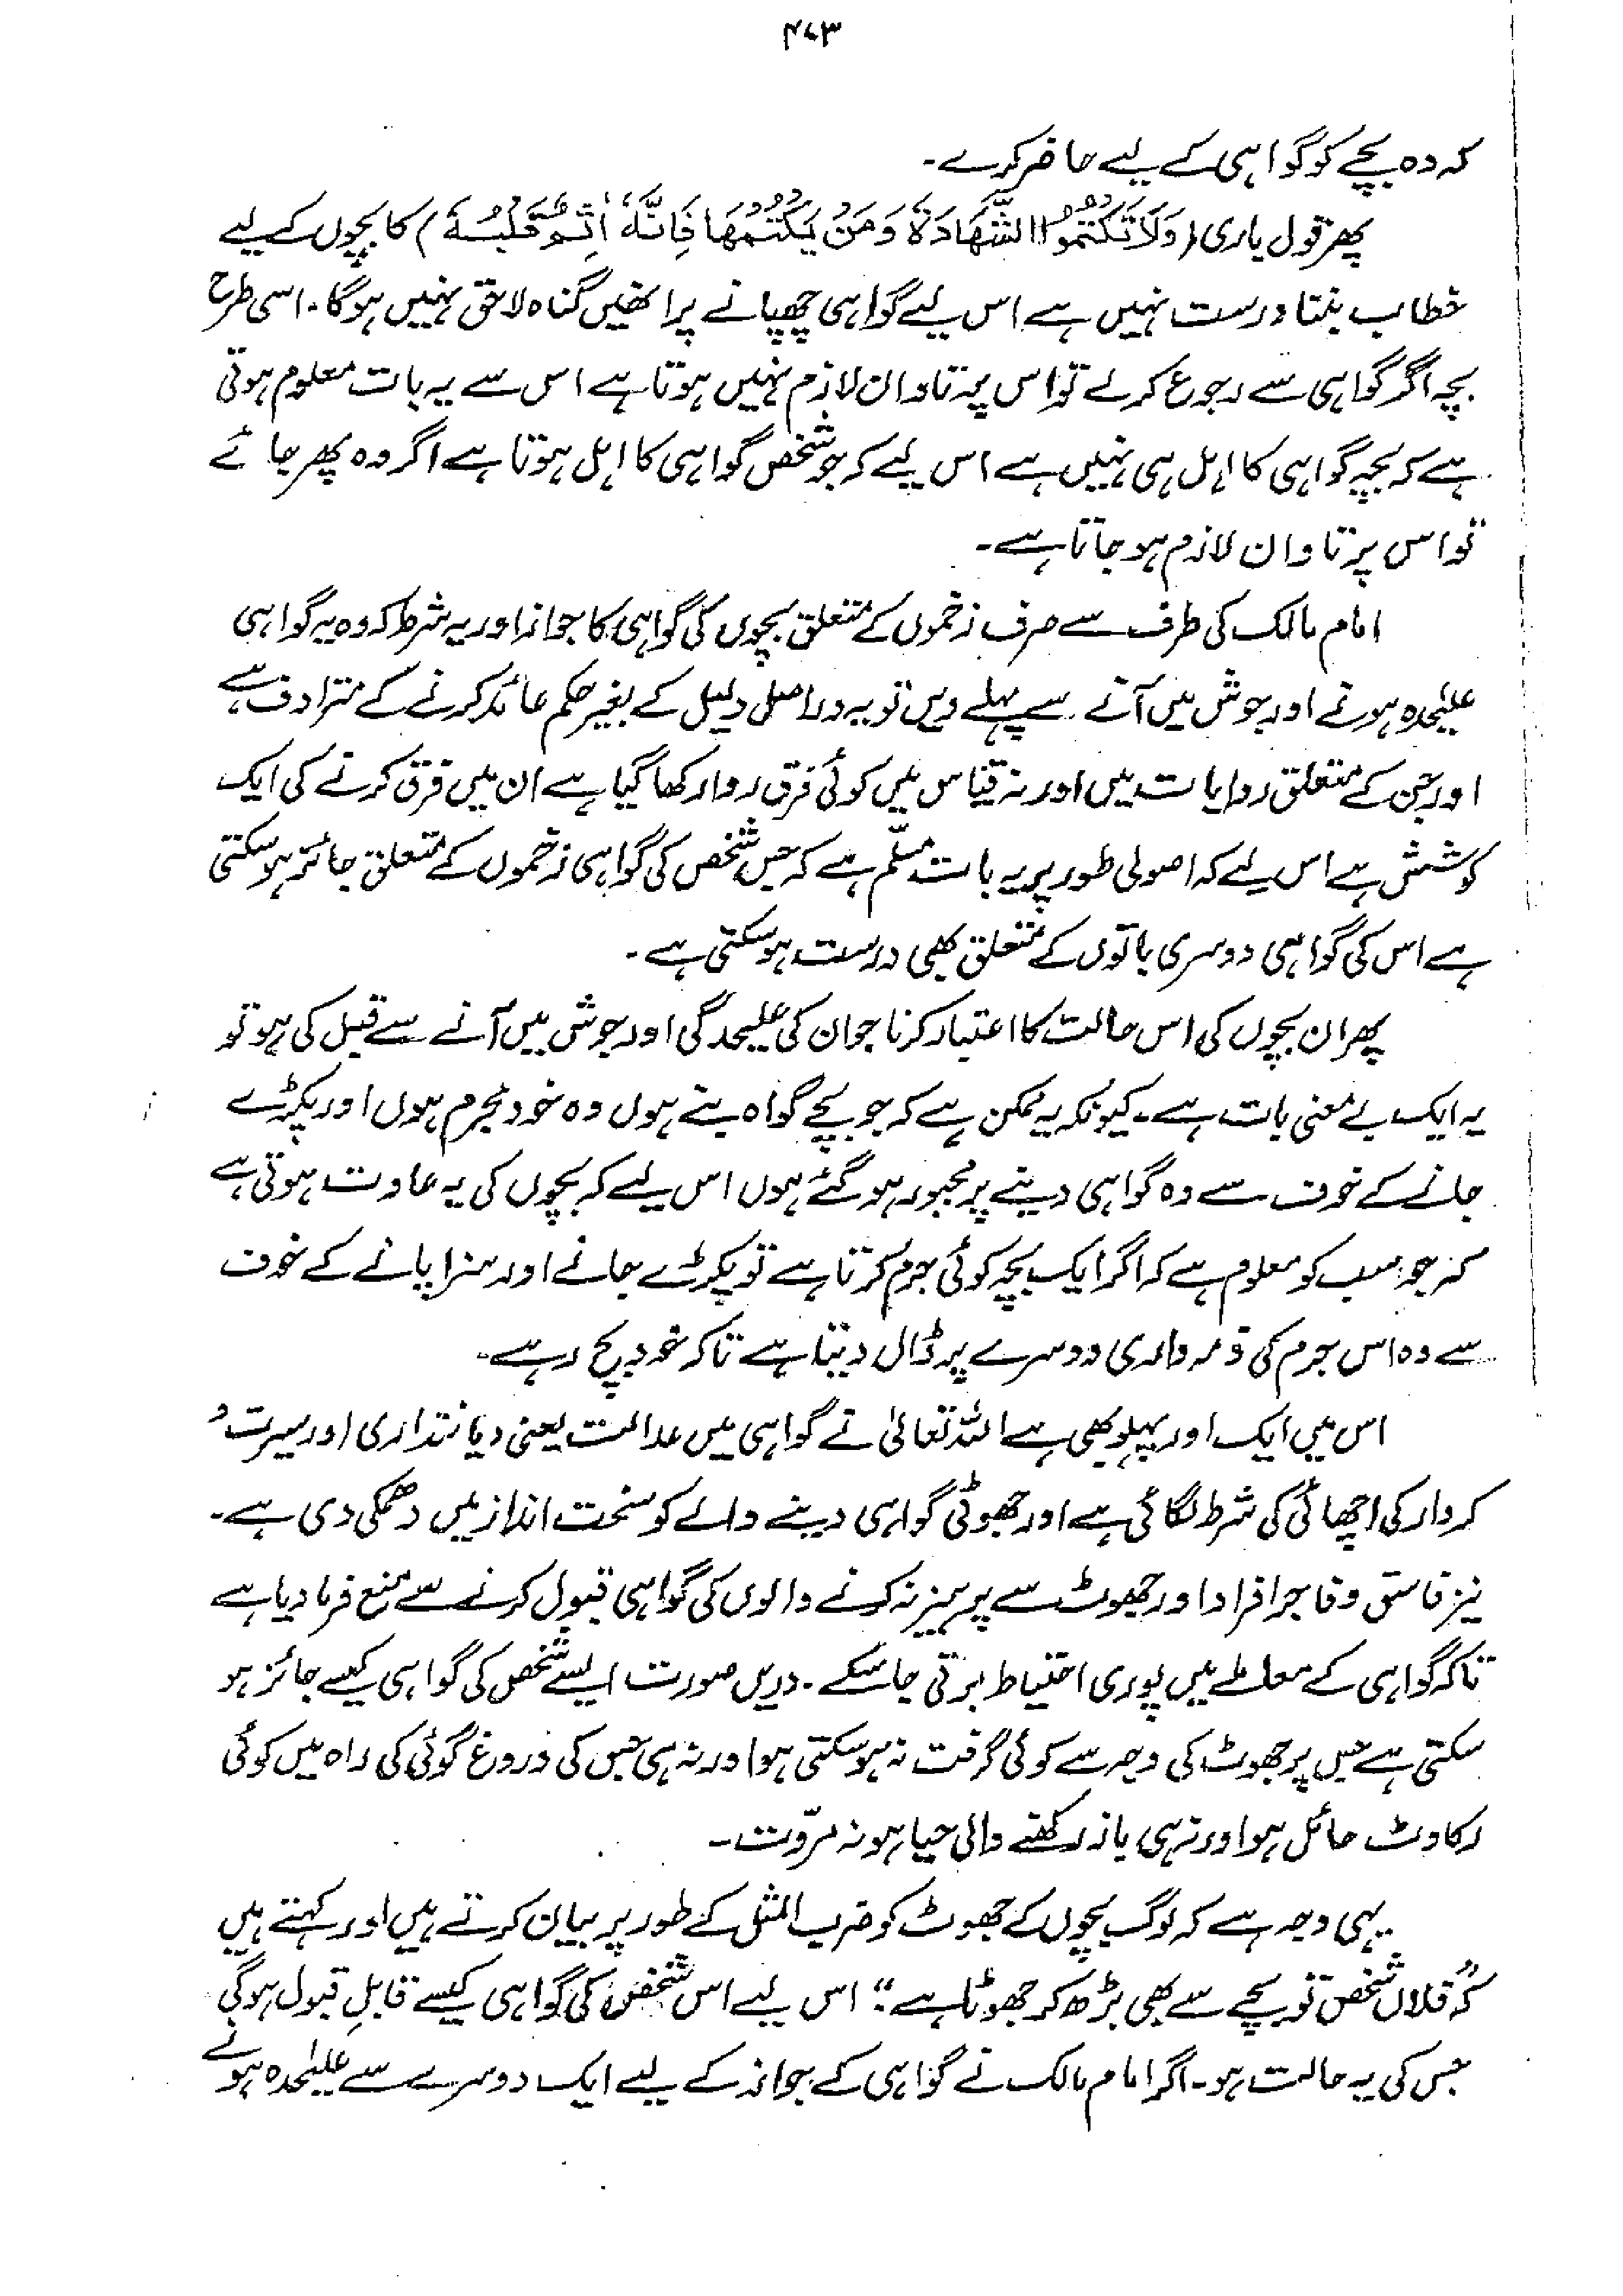 ۴۷۳
کہ وہ بچے کو گواہی کے لیے حاضر کرے۔
پھر قول باری (وَلَا تَكْتُمُوا الشَّهَادَةَ وَمَنْ يَكْتُمْهَا فَإِنَّهُ اٰثِمٌ قَلْبُهُ) کا بچوں کے لیے
خطاب بننا درست نہیں ہے اس لیے گواہی چھپانے پر انھیں گناہ لاحق نہیں ہوگا۔ اسی طرح
بچہ اگر گواہی سے رجوع کرلے تو اس پر تاوان لازم نہیں ہوتا ہے اس سے یہ بات معلوم ہوتی
ہے کہ بچہ گواہی کا اہل ہی نہیں ہے اس لیے کہ جو شخص گواہی کا اہل ہوتا ہے اگر وہ پھر جائے
تو اس پر تاوان لازم ہو جاتا ہے۔
امام مالک کی طرف سے صرف زخموں کے متعلق بچوں کی گواہی کا جواز اور یہ شرط کہ وہ یہ گواہی
علیٰحدہ ہونے اور جوش میں آنے سے پہلے دیں تو یہ دراصل دلیل کے بغیر حکم عائد کرنے کے مترادف ہے
اور جن کے متعلق روایات میں اور نہ قیاس میں کوئی فرق روا رکھا گیا ہے ان میں فرق کرنے کی ایک
کوشش ہے اس لیے کہ اصولی طور پر یہ بات مسلّم ہے کہ جس شخص کی گواہی زخموں کے متعلق جائز ہوسکتی
ہے اس کی گواہی دوسری باتوں کے متعلق بھی درست ہوسکتی ہے۔
پھر ان بچوں کی اس حالت کا اعتبار کرنا جو ان کی علیحدگی اور جوش میں آنے سے قبل کی ہو تو
یہ ایک بے معنی بات ہے۔ کیونکہ یہ ممکن ہے کہ جو بچے گواہ بنے ہوں وہ خود مجرم ہوں اور پکڑے
جانے کے خوف سے وہ گواہی دینے پر مجبور ہو گئے ہوں اس لیے کہ بچوں کی یہ عادت ہوتی ہے
کہ جو سب کو معلوم ہے کہ اگر ایک بچہ کوئی جرم کرتا ہے تو پکڑے جانے اور سزا پانے کے خوف
سے وہ اس جرم کی ذمہ داری دوسرے پر ڈال دیتا ہے تاکہ خود بچ رہے۔
اس میں ایک اور پہلو بھی ہے اللہ تعالیٰ نے گواہی میں عدالت یعنی دیانتداری اور سیرت و
کردار کی اچھائی کی شرط لگائی ہے اور جھوٹی گواہی دینے والے کو سخت انداز میں دھمکی دی ہے۔
نیز فاسق و فاجر افراد اور جھوٹ سے پرہیز نہ کرنے والوں کی گواہی قبول کرنے سے منع فرمادیا ہے
تاکہ گواہی کے معاملے میں پوری احتیاط برتی جاسکے۔ دریں صورت ایسے شخص کی گواہی کیسے جائز ہو
سکتی ہے جس پر جھوٹ کی وجہ سے کوئی گرفت نہ ہوسکتی ہو اور نہ ہی جس کی دروغ گوئی کی راہ میں کوئی
رکاوٹ حائل ہو اور نہ ہی باز رکھنے والی حیا ہو نہ مروّت۔
یہی وجہ ہے کہ لوگ بچوں کے جھوٹ کو ضرب المثل کے طور پر بیان کرتے ہیں اور کہتے ہیں
کہ ”فلاں شخص تو بچے سے بھی بڑھ کر جھوٹا ہے“ اس لیے اس شخص کی گواہی کیسے قابلِ قبول ہوگی
جس کی یہ حالت ہو۔ اگر امام مالک نے گواہی کے جواز کے لیے ایک دوسرے سے علیٰحدہ ہونے